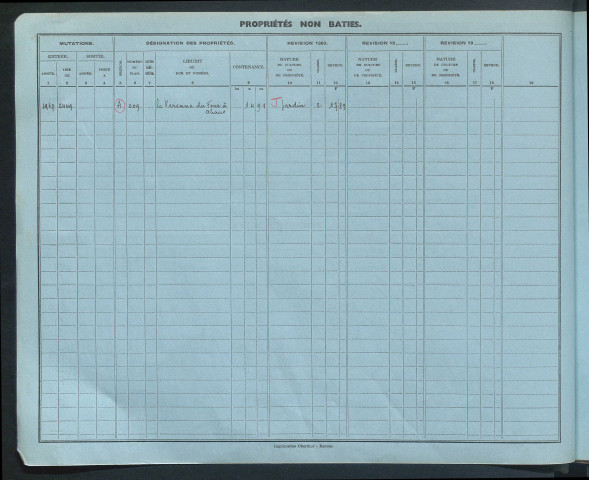 PROPRIÉTÉS NON BATIES.
MUTATIONS. DÉSIGNATION DES PROPRIÉTÉS. REVISION 1960. REVISION 19 REVISION 19
ENTRÉE. SORTIE. SECTION. NUMÉRO DU PLAN. LIEUDIT OU RUE ET NUMÉRO. CONTENANCE. NATURE DE CULTURE OU DE PROPRIÉTÉ. CLASSE. REVENU. NATURE DE CULTURE OU DE PROPRIÉTÉ. CLASSE. REVENU. NATURE DE CULTURE OU DE PROPRIÉTÉ. CLASSE. REVENU.
ANNÉE. TIRÉ DE ANNÉE. PORTÉ A
1 2 3 4 5 6 7 8 9 10 11 12 13 14 15 16 17 18 19
A 209 La Varenne du Four à Chaux 14 91 J Jardin 2
Imprimerie Oberthur - Rennes